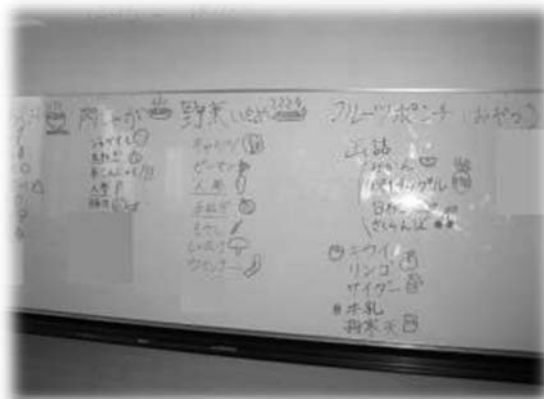 肉じゃが
じゃがいも
玉ねぎ
糸こんにゃく
人参
豚肉
野菜いため
キャベツ
ピーマン
人参
玉ねぎ
もやし
しいたけ
ウインナー
フルーツポンチ(おやつ)
缶詰
みかん
パイナップル
白桃
さくらんぼ
キウイ
リンゴ
サイダー
牛乳
粉寒天